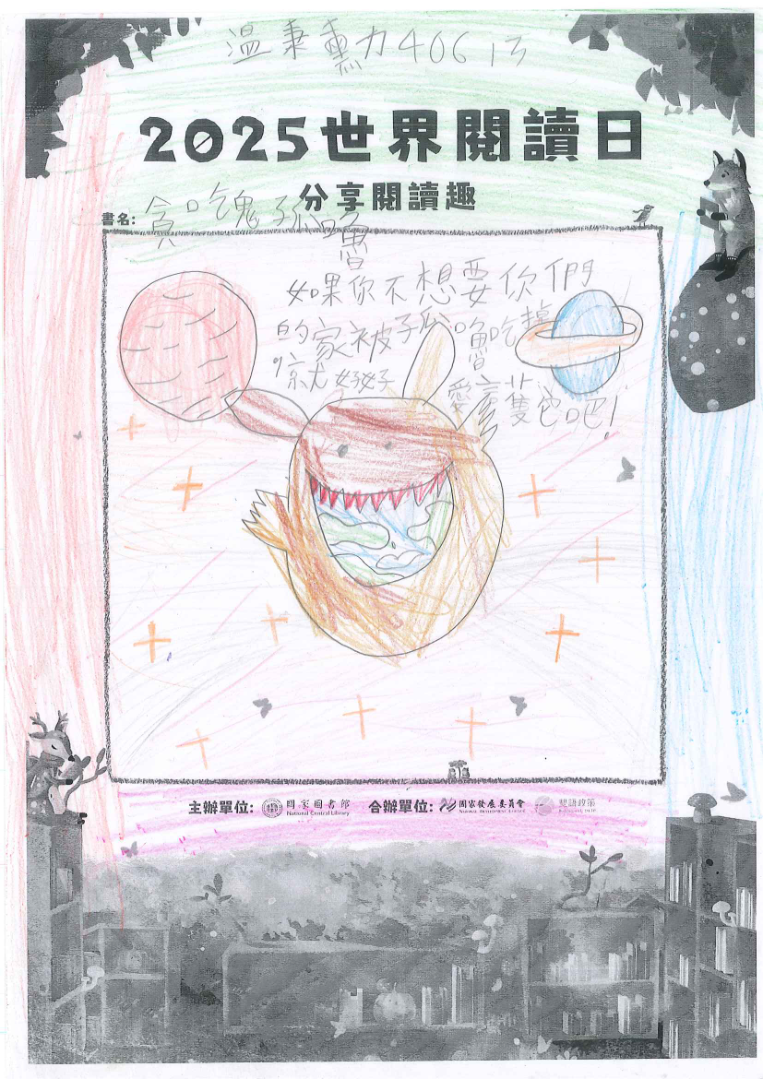 溫秉勳 40613
2025世界閱讀日
分享閱讀趣
書名: 貪吃魂孤嚕
如果你不想要你們
的家被孤嚕吃掉
就好好
愛護它吧!
主辦單位: 國家圖書館 National Central Library 合辦單位: 國家發展委員會 National Development Council 雙語政策